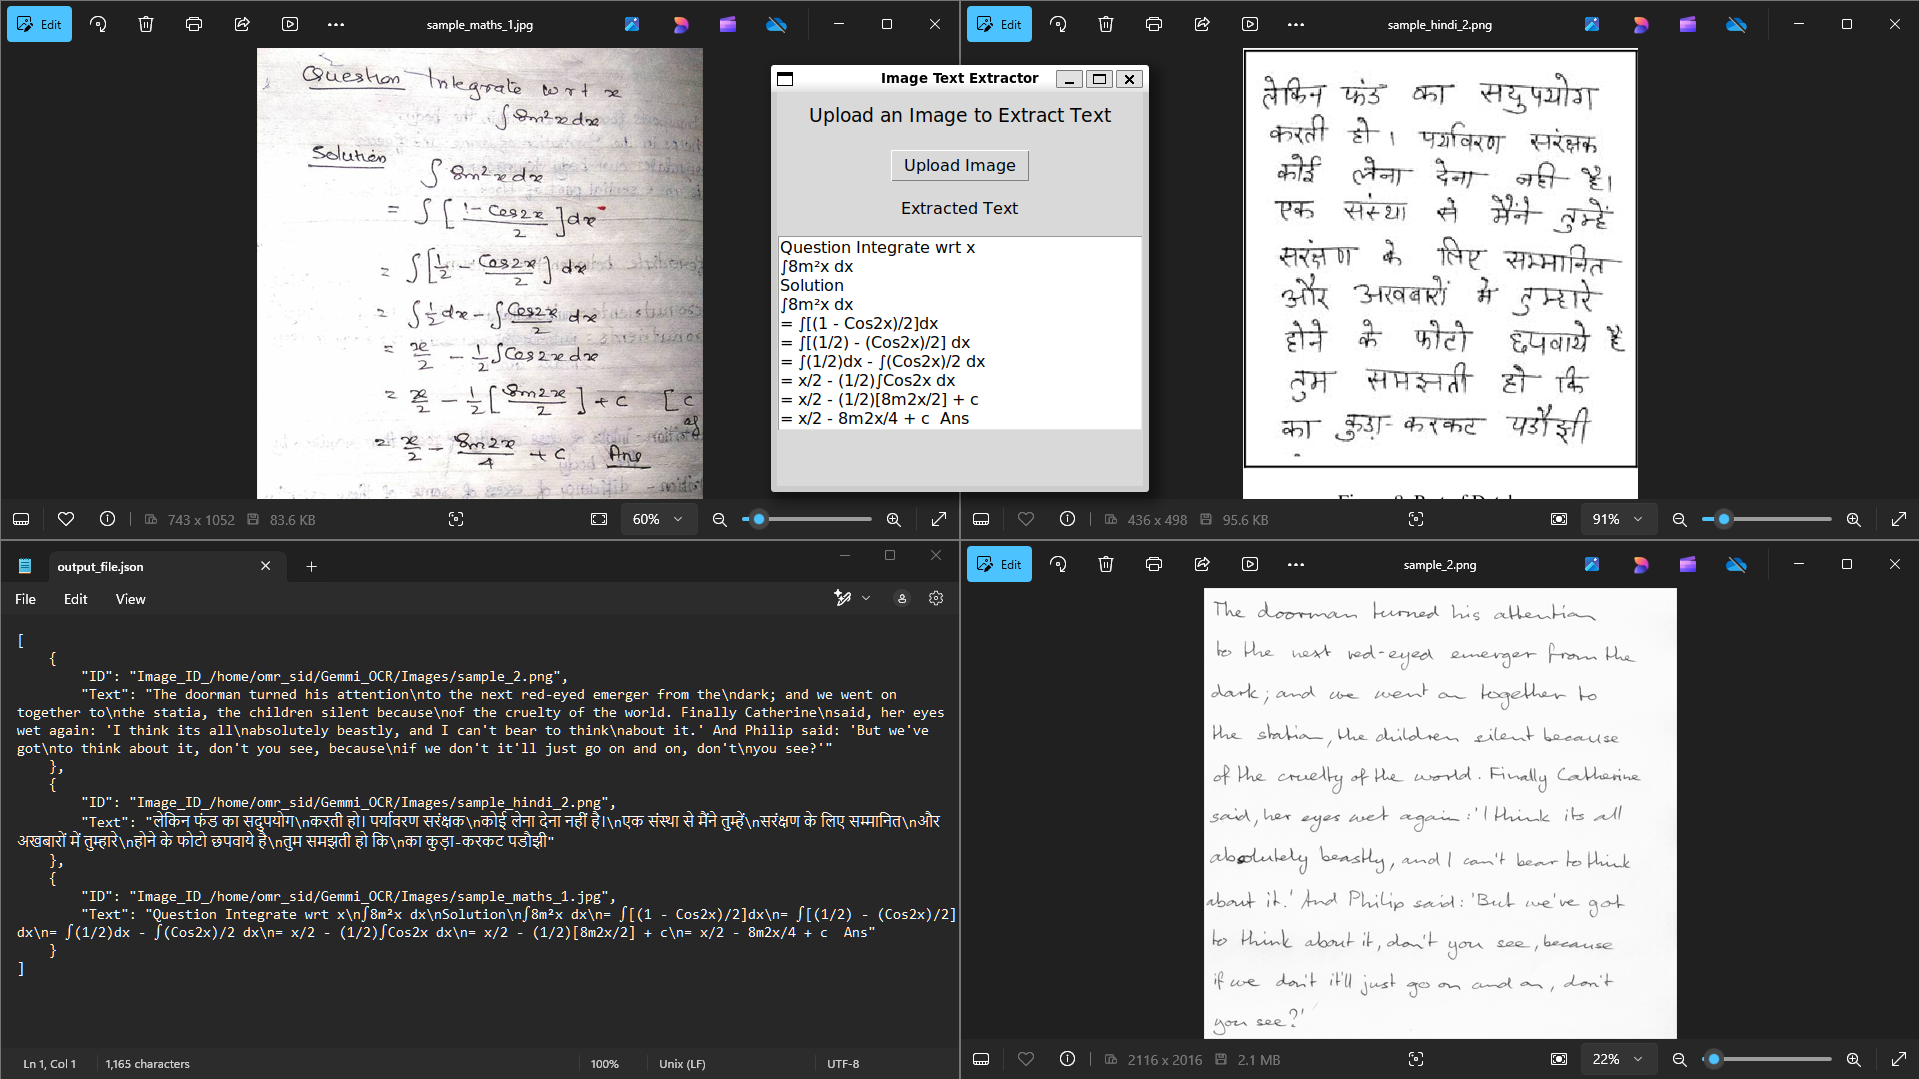 Edit
sample_maths_1.jpg
Question Integrate wrt x
∫ 8m²x dx
Solution
∫ 8m²x dx
= ∫ [ 1 - Cos2x / 2 ] dx
= ∫ [ 1/2 - Cos2x / 2 ] dx
= ∫ 1/2 dx - ∫ Cos2x / 2 dx
= x/2 - 1/2 ∫ Cos2x dx
= x/2 - 1/2 [ 8m2x / 2 ] + c [ c
of
= x/2 - 8m2x / 4 + c Ans
743 x 1052 83.6 KB
60%
Image Text Extractor
Upload an Image to Extract Text
Upload Image
Extracted Text
Question Integrate wrt x
∫8m²x dx
Solution
∫8m²x dx
= ∫[(1 - Cos2x)/2]dx
= ∫[(1/2) - (Cos2x)/2] dx
= ∫(1/2)dx - ∫(Cos2x)/2 dx
= x/2 - (1/2)∫Cos2x dx
= x/2 - (1/2)[8m2x/2] + c
= x/2 - 8m2x/4 + c  Ans
Edit
sample_hindi_2.png
लेकिन फंड का सदुपयोग
करती हो । पर्यावरण सरंक्षक
कोई लेना देना नही है।
एक संस्था से मैंने तुम्हें
सरंक्षण के लिए सम्मानित
और अखबारों में तुम्हारे
होने के फोटो छपवाये है
तुम समझती हो कि
का कुड़ा-करकट पडौझी
436 x 498 95.6 KB
91%
output_file.json
File Edit View
[
{
"ID": "Image_ID_/home/omr_sid/Gemmi_OCR/Images/sample_2.png",
"Text": "The doorman turned his attention\nto the next red-eyed emerger from the\ndark; and we went on
together to\nthe statia, the children silent because\nof the cruelty of the world. Finally Catherine\nsaid, her eyes
wet again: 'I think its all\nabsolutely beastly, and I can't bear to think\nabout it.' And Philip said: 'But we've
got\nto think about it, don't you see, because\nif we don't it'll just go on and on, don't\nyou see?'"
},
{
"ID": "Image_ID_/home/omr_sid/Gemmi_OCR/Images/sample_hindi_2.png",
"Text": "लेकिन फंड का सदुपयोग\nकरती हो। पर्यावरण सरंक्षक\nकोई लेना देना नहीं है।\nएक संस्था से मैंने तुम्हें\nसरंक्षण के लिए सम्मानित\nऔर
अखबारों में तुम्हारे\nहोने के फोटो छपवाये है\nतुम समझती हो कि\nका कुड़ा-करकट पडौझी"
},
{
"ID": "Image_ID_/home/omr_sid/Gemmi_OCR/Images/sample_maths_1.jpg",
"Text": "Question Integrate wrt x\n∫8m²x dx\nSolution\n∫8m²x dx\n= ∫[(1 - Cos2x)/2]dx\n= ∫[(1/2) - (Cos2x)/2]
dx\n= ∫(1/2)dx - ∫(Cos2x)/2 dx\n= x/2 - (1/2)∫Cos2x dx\n= x/2 - (1/2)[8m2x/2] + c\n= x/2 - 8m2x/4 + c  Ans"
}
]
Ln 1, Col 1 1,165 characters 100% Unix (LF) UTF-8
Edit
sample_2.png
The doorman turned his attention
to the next red-eyed emerger from the
dark; and we went on together to
the station, the children silent because
of the cruelty of the world. Finally Catherine
said, her eyes wet again: 'I think its all
absolutely beastly, and I can't bear to think
about it.' And Philip said: 'But we've got
to think about it, don't you see, because
if we don't it'll just go on and on, don't
you see?'
2116 x 2016 2.1 MB
22%